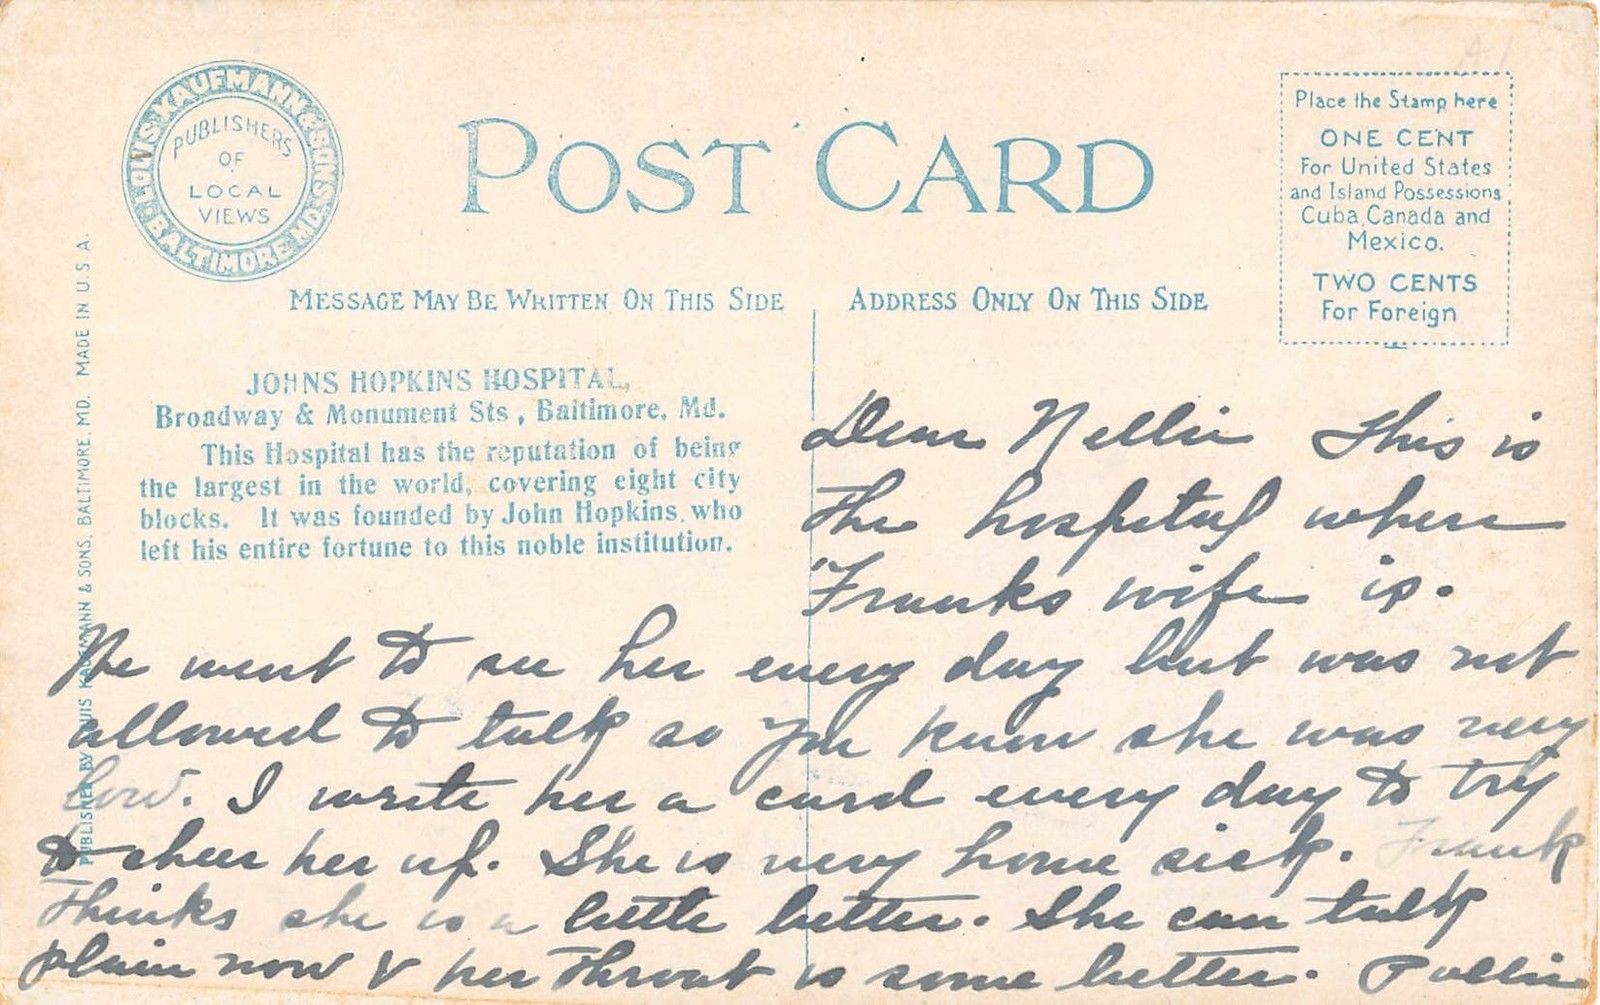 LOUIS KAUFMANN & SONS. BALTIMORE MD.
PUBLISHERS
OF
LOCAL
VIEWS
POST CARD
Place the Stamp here
ONE CENT
For United States
and Island Possessions
Cuba, Canada and
Mexico.
TWO CENTS
For Foreign
MESSAGE MAY BE WRITTEN ON THIS SIDE
ADDRESS ONLY ON THIS SIDE
PUBLISHED BY LOUIS KAUFMANN & SONS, BALTIMORE, MD. MADE IN U.S.A.
JOHNS HOPKINS HOSPITAL,
Broadway & Monument Sts, Baltimore, Md.
This Hospital has the reputation of being
the largest in the world, covering eight city
blocks. It was founded by John Hopkins, who
left his entire fortune to this noble institution.
Dear Nellie This is
the hospital where
Franks wife is.
We went to see her every day but was not
allowed to talk so you know she was very
low. I write her a card every day to try
to cheer her up. She is very home sick. Frank
thinks she is a little better. She can talk
plain now & her throat is some better. Pollie